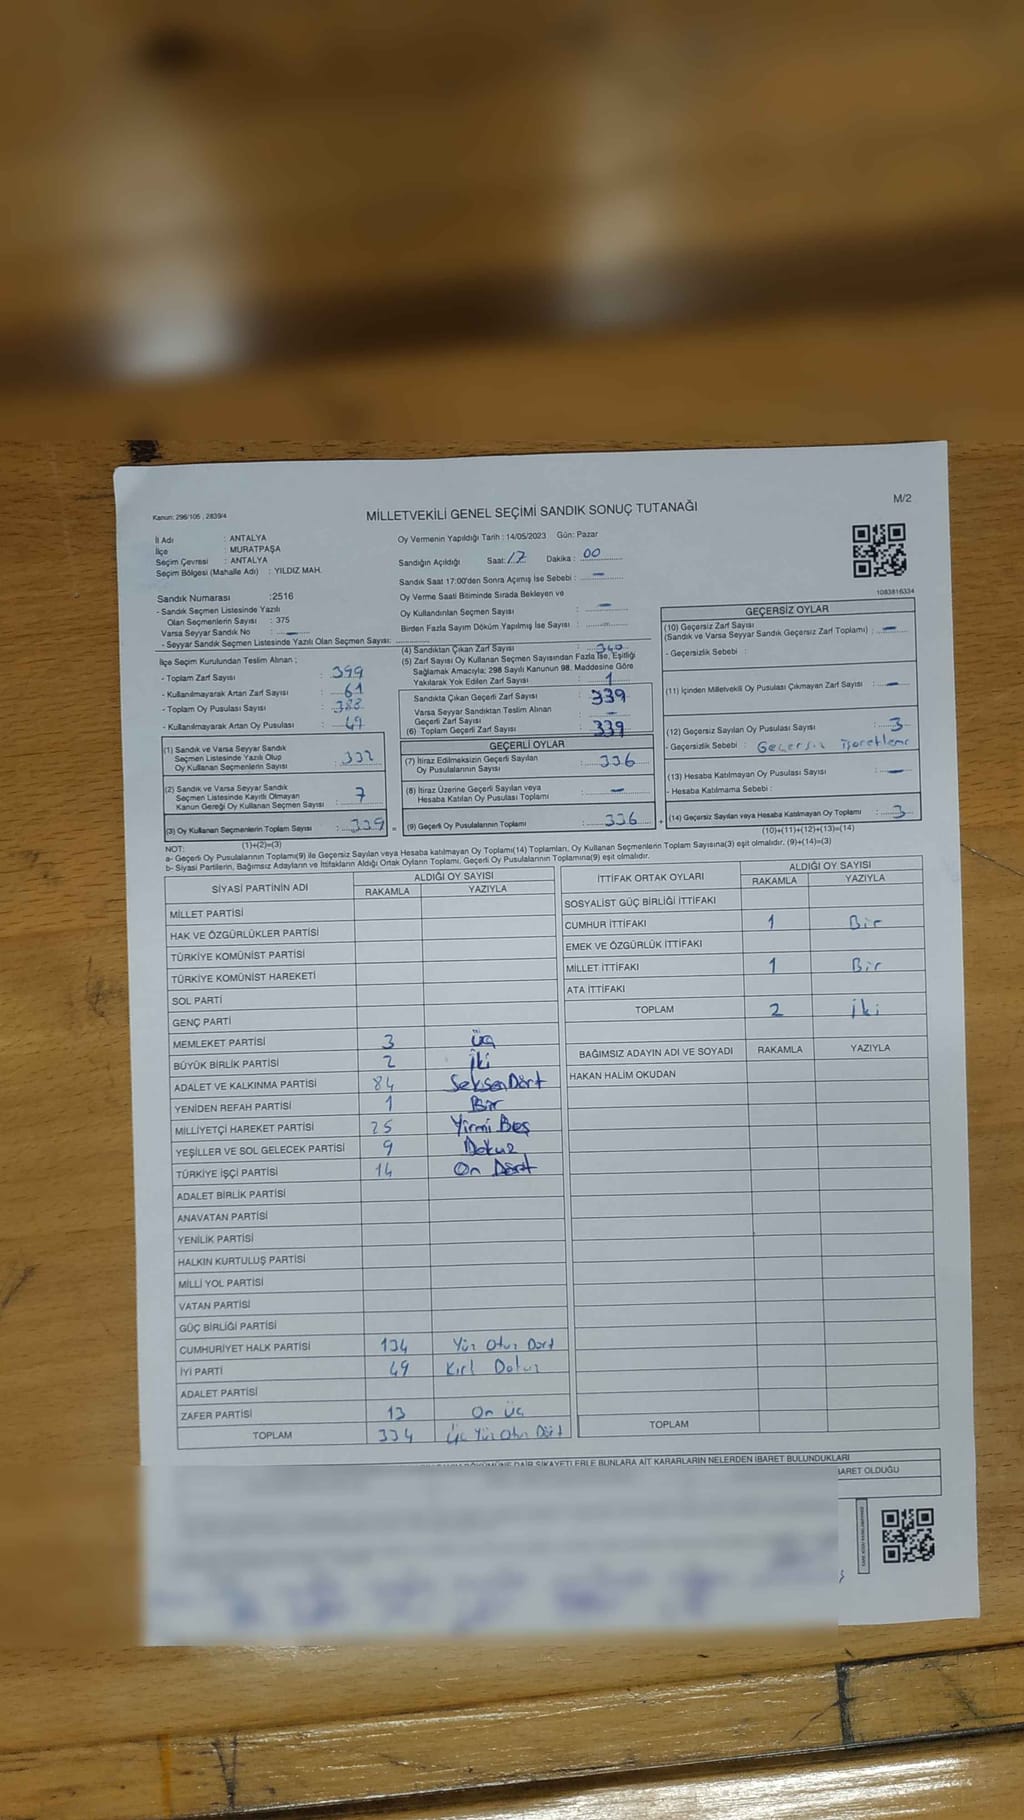 Kanun: 296/105 , 2839/4
MİLLETVEKİLİ GENEL SEÇİMİ SANDIK SONUÇ TUTANAĞI
M/2
İl Adı : ANTALYA
İlçe : MURATPAŞA
Seçim Çevresi : ANTALYA
Seçim Bölgesi (Mahalle Adı) : YILDIZ MAH.
Oy Vermenin Yapıldığı Tarih : 14/05/2023 Gün: Pazar
Sandığın Açıldığı Saat: 17 Dakika : 00
Sandık Saat 17:00'den Sonra Açımış İse Sebebi : —
Oy Verme Saati Bitiminde Sırada Bekleyen ve
Oy Kullandırılan Seçmen Sayısı : —
Birden Fazla Sayım Döküm Yapılmış İse Sayısı : —
1083816334
Sandık Numarası :2516
- Sandık Seçmen Listesinde Yazılı
Olan Seçmenlerin Sayısı : 375
Varsa Seyyar Sandık No : —
- Seyyar Sandık Seçmen Listesinde Yazılı Olan Seçmen Sayısı:
İlçe Seçim Kurulundan Teslim Alınan ;
- Toplam Zarf Sayısı : 399
- Kullanılmayarak Artan Zarf Sayısı : 61
- Toplam Oy Pusulası Sayısı : 388
- Kullanılmayarak Artan Oy Pusulası : 49
(1) Sandık ve Varsa Seyyar Sandık
Seçmen Listesinde Yazılı Olup
Oy Kullanan Seçmenlerin Sayısı : 332
(2) Sandık ve Varsa Seyyar Sandık
Seçmen Listesinde Kayıtlı Olmayan
Kanun Gereği Oy Kullanan Seçmen Sayısı : 7
(3) Oy Kullanan Seçmenlerin Toplam Sayısı : 339 =
(1)+(2)=(3)
(4) Sandıktan Çıkan Zarf Sayısı : 340
(5) Zarf Sayısı Oy Kullanan Seçmen Sayısından Fazla İse, Eşitliği
Sağlamak Amacıyla; 298 Sayılı Kanunun 98. Maddesine Göre
Yakılarak Yok Edilen Zarf Sayısı : 1
Sandıkta Çıkan Geçerli Zarf Sayısı : 339
Varsa Seyyar Sandıktan Teslim Alınan
Geçerli Zarf Sayısı : —
(6) Toplam Geçerli Zarf Sayısı : 339
GEÇERLİ OYLAR
(7) İtiraz Edilmeksizin Geçerli Sayılan
Oy Pusulalarının Sayısı : 336
(8) İtiraz Üzerine Geçerli Sayılan veya
Hesaba Katılan Oy Pusulası Toplamı : —
(9) Geçerli Oy Pusulalarının Toplamı : 336 +
GEÇERSİZ OYLAR
(10) Geçersiz Zarf Sayısı
(Sandık ve Varsa Seyyar Sandık Geçersiz Zarf Toplamı) : —
- Geçersizlik Sebebi :
(11) İçinden Milletvekili Oy Pusulası Çıkmayan Zarf Sayısı : —
(12) Geçersiz Sayılan Oy Pusulası Sayısı : 3
- Geçersizlik Sebebi : Geçersiz işaretleme
(13) Hesaba Katılmayan Oy Pusulası Sayısı : —
- Hesaba Katılmama Sebebi :
(14) Geçersiz Sayılan veya Hesaba Katılmayan Oy Toplamı : 3
(10)+(11)+(12)+(13)=(14)
NOT:
a- Geçerli Oy Pusulalarının Toplamı(9) ile Geçersiz Sayılan veya Hesaba katılmayan Oy Toplamı(14) Toplamları, Oy Kullanan Seçmenlerin Toplam Sayısına(3) eşit olmalıdır. (9)+(14)=(3)
b- Siyasi Partilerin, Bağımsız Adayların ve İttifakların Aldığı Ortak Oyların Toplamı, Geçerli Oy Pusulalarının Toplamına(9) eşit olmalıdır.
SİYASİ PARTİNİN ADI ALDIĞI OY SAYISI
RAKAMLA YAZIYLA
MİLLET PARTİSİ
HAK VE ÖZGÜRLÜKLER PARTİSİ
TÜRKİYE KOMÜNİST PARTİSİ
TÜRKİYE KOMÜNİST HAREKETİ
SOL PARTİ
GENÇ PARTİ
MEMLEKET PARTİSİ 3 Üç
BÜYÜK BİRLİK PARTİSİ 2 İki
ADALET VE KALKINMA PARTİSİ 84 Seksen Dört
YENİDEN REFAH PARTİSİ 1 Bir
MİLLİYETÇİ HAREKET PARTİSİ 25 Yirmi Beş
YEŞİLLER VE SOL GELECEK PARTİSİ 9 Dokuz
TÜRKİYE İŞÇİ PARTİSİ 14 On Dört
ADALET BİRLİK PARTİSİ
ANAVATAN PARTİSİ
YENİLİK PARTİSİ
HALKIN KURTULUŞ PARTİSİ
MİLLİ YOL PARTİSİ
VATAN PARTİSİ
GÜÇ BİRLİĞİ PARTİSİ
CUMHURİYET HALK PARTİSİ 134 Yüz Otuz Dört
İYİ PARTİ 49 Kırk Dokuz
ADALET PARTİSİ
ZAFER PARTİSİ 13 On Üç
TOPLAM 334 Üç Yüz Otuz Dört
İTTİFAK ORTAK OYLARI ALDIĞI OY SAYISI
RAKAMLA YAZIYLA
SOSYALİST GÜÇ BİRLİĞİ İTTİFAKI
CUMHUR İTTİFAKI 1 Bir
EMEK VE ÖZGÜRLÜK İTTİFAKI
MİLLET İTTİFAKI 1 Bir
ATA İTTİFAKI
TOPLAM 2 İki
BAĞIMSIZ ADAYIN ADI VE SOYADI RAKAMLA YAZIYLA
HAKAN HALİM OKUDAN
TOPLAM
DÖKÜMÜNE DAİR ŞİKAYETLERLE BUNLARA AİT KARARLARIN NELERDEN İBARET BULUNDUKLARI
İBARET OLDUĞU